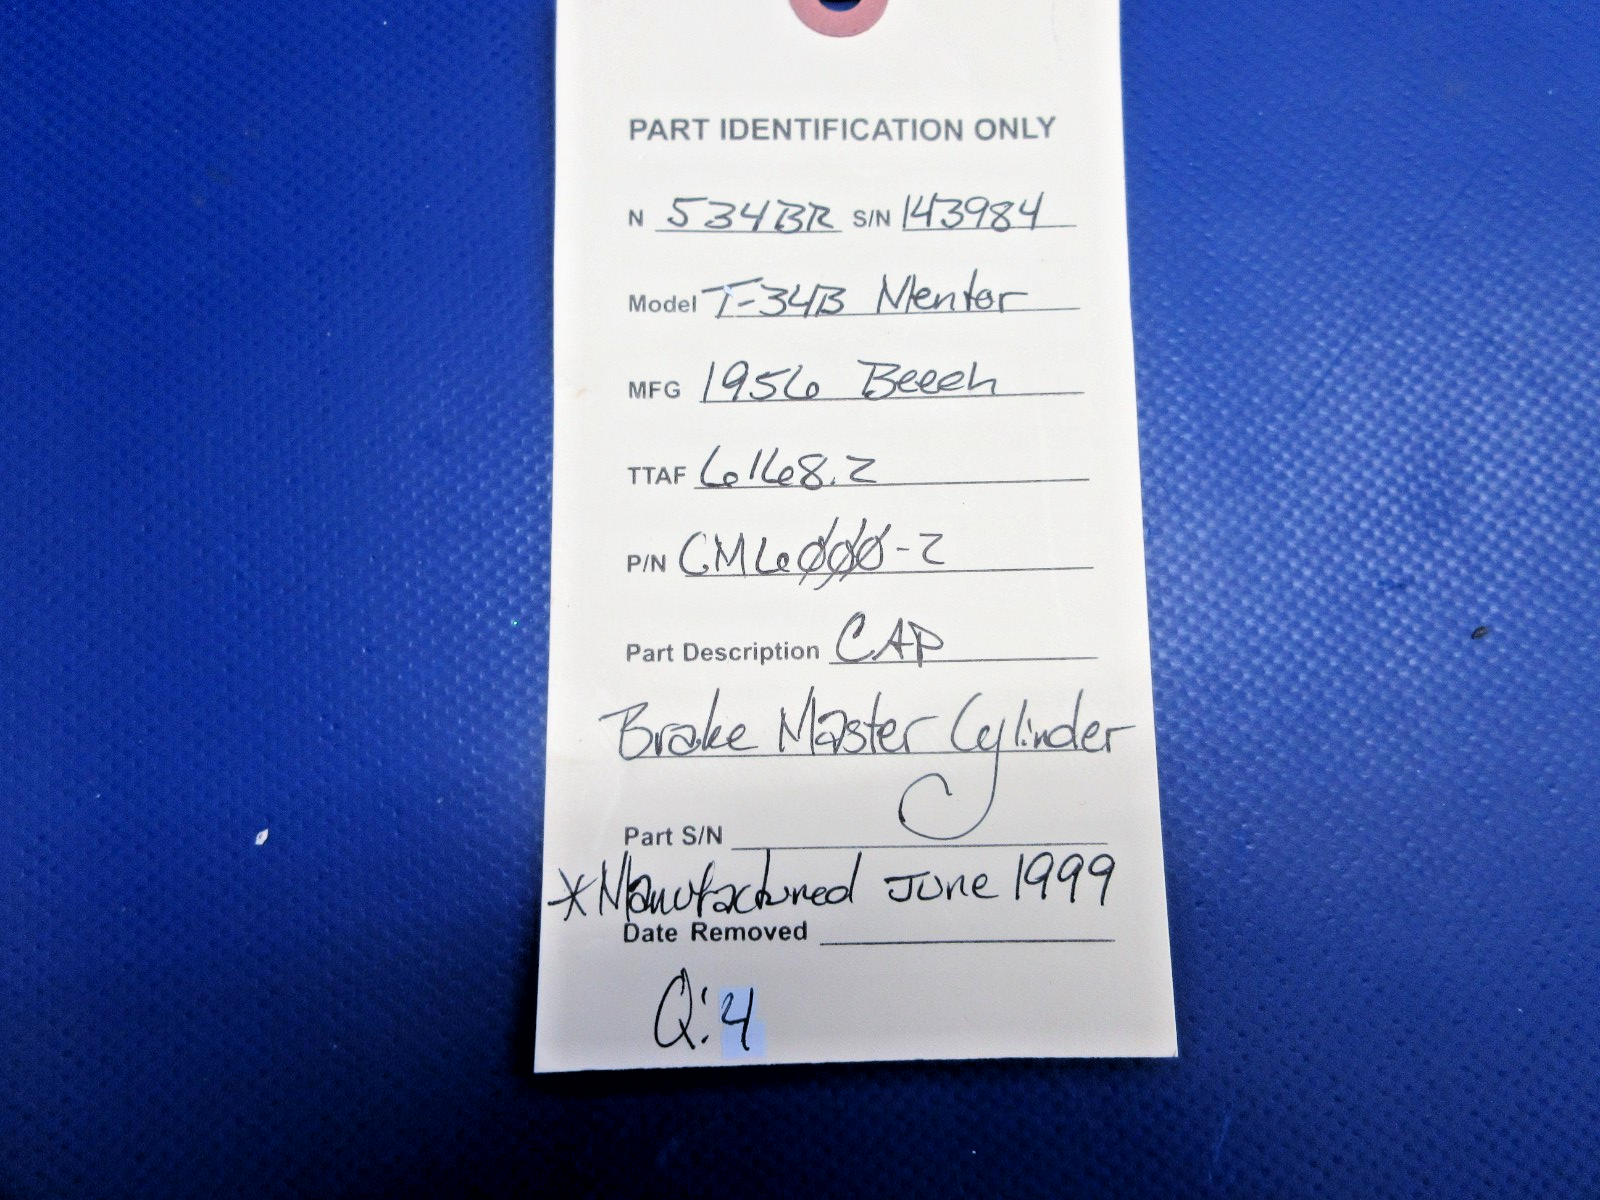 PART IDENTIFICATION ONLY
N 534BR S/N 143984
Model T-34B Mentor
MFG 1956 Beech
TTAF 6168.2
P/N CM6000-2
Part Description CAP
Brake Master Cylinder
Part S/N
*Manufactured June 1999
Date Removed
Q:4